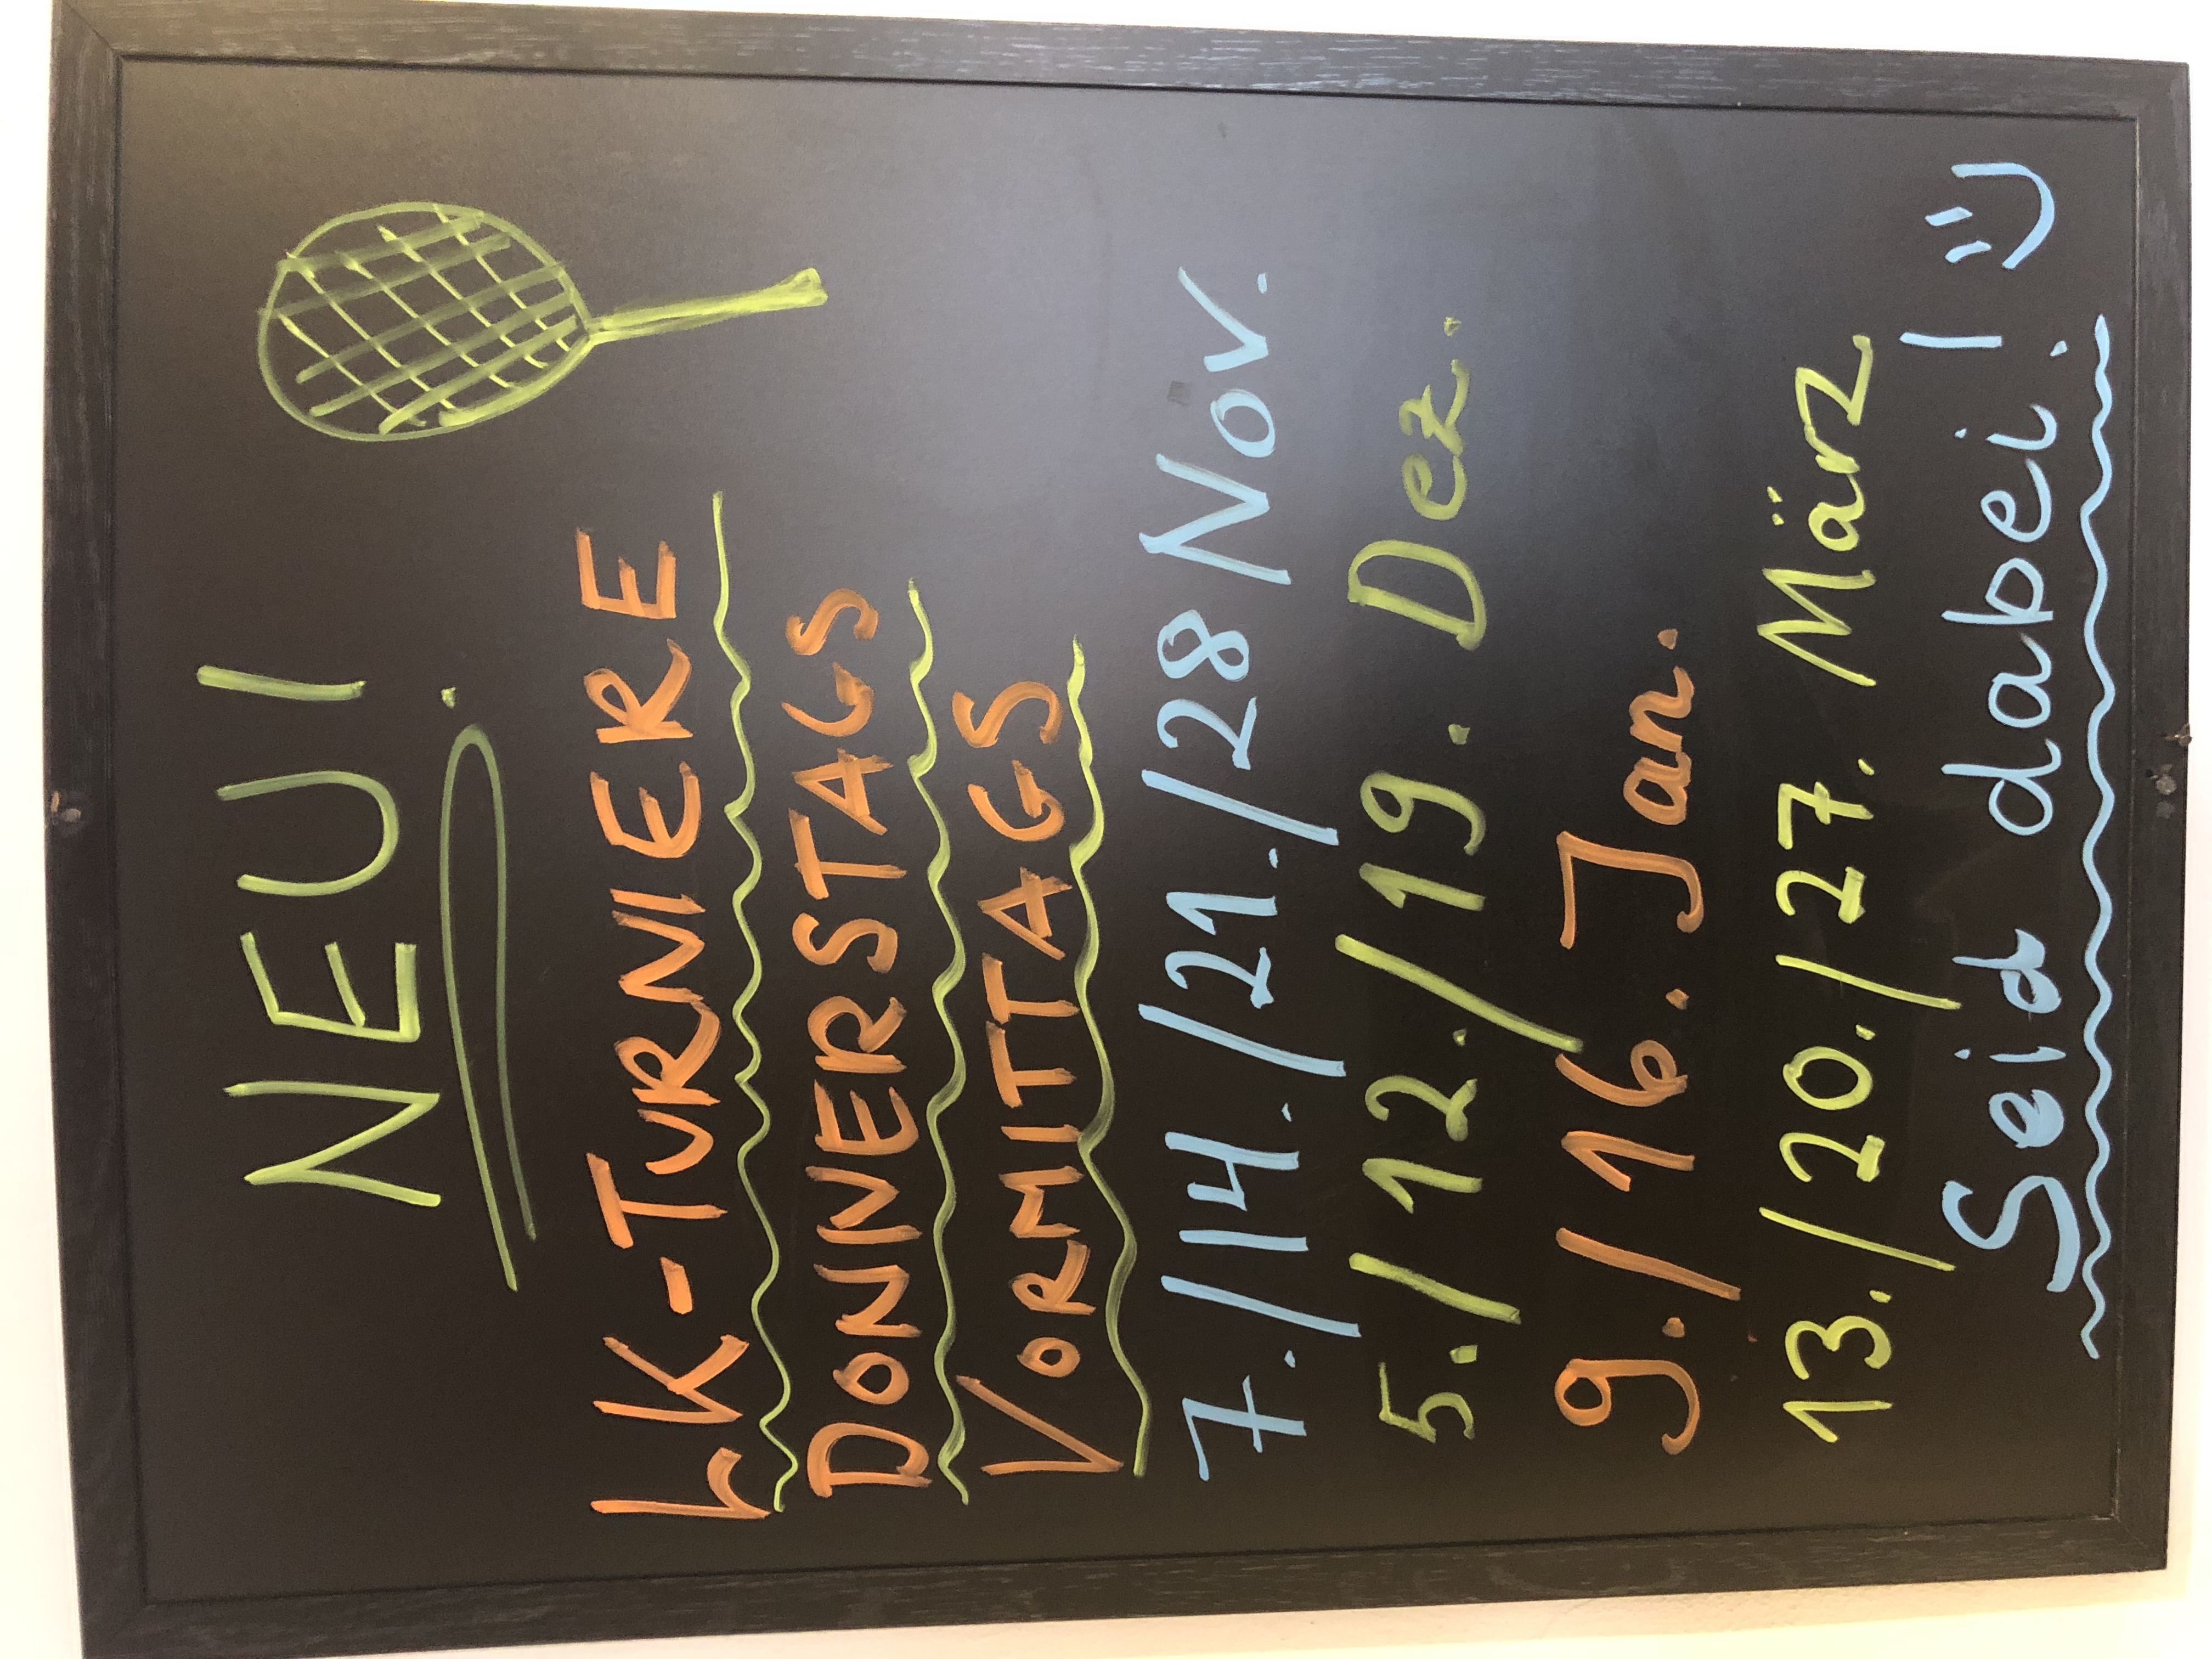 NEU!
LK-TURNIERE
DONNERSTAGS
VORMITTAGS
7./14./21./28 Nov.
5./12./19. Dez.
9./16. Jan.
13./20./27. März
Seid dabei! :)